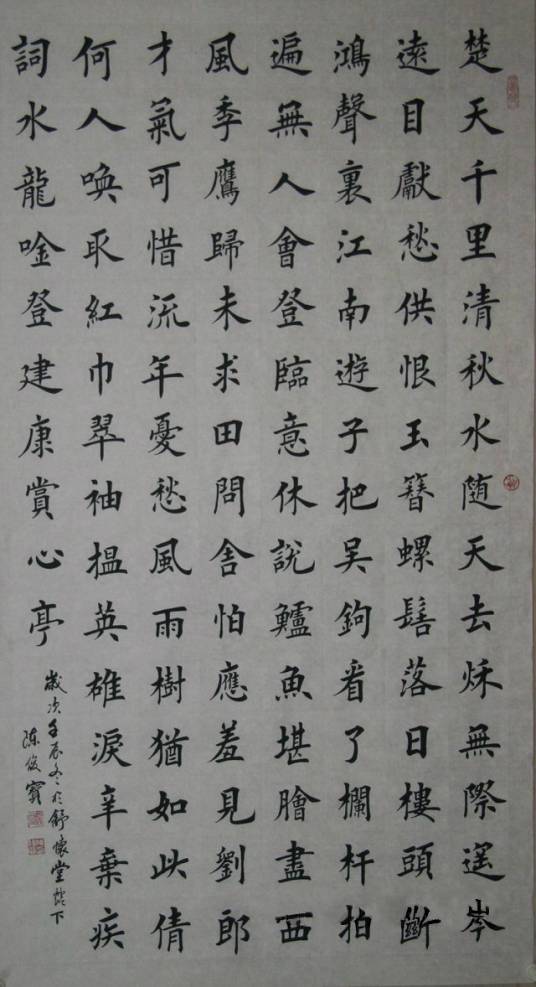 楚天千里清秋水随天去秌無際遥岑
遠目獻愁供恨玉簪螺髻落日樓頭斷
鴻聲裏江南遊子把吴鉤看了欄杆拍
遍無人會登臨意休説鱸魚堪膾盡西
風季鷹歸未求田問舍怕應羞見劉郎
才氣可惜流年憂愁風雨樹猶如此倩
何人喚取紅巾翠袖揾英雄淚辛棄疾
詞水龍唫登建康賞心亭
歲次壬辰冬於舒懷堂燈下
陈俊寶